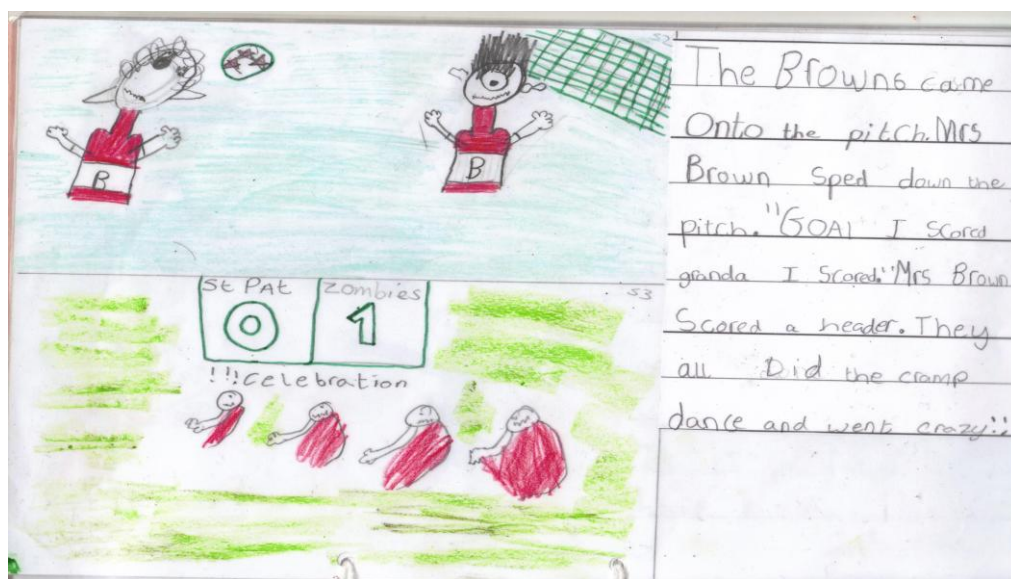 52
B
B
St PAt
Zombies
0
1
53
!!!Celebration
The Browns came
Onto the pitch. Mrs
Brown Sped down the
pitch. "GOAl I Scored
granda I Scored." Mrs Brown
Scored a header. They
all Did the cramp
dance and went crazy!!